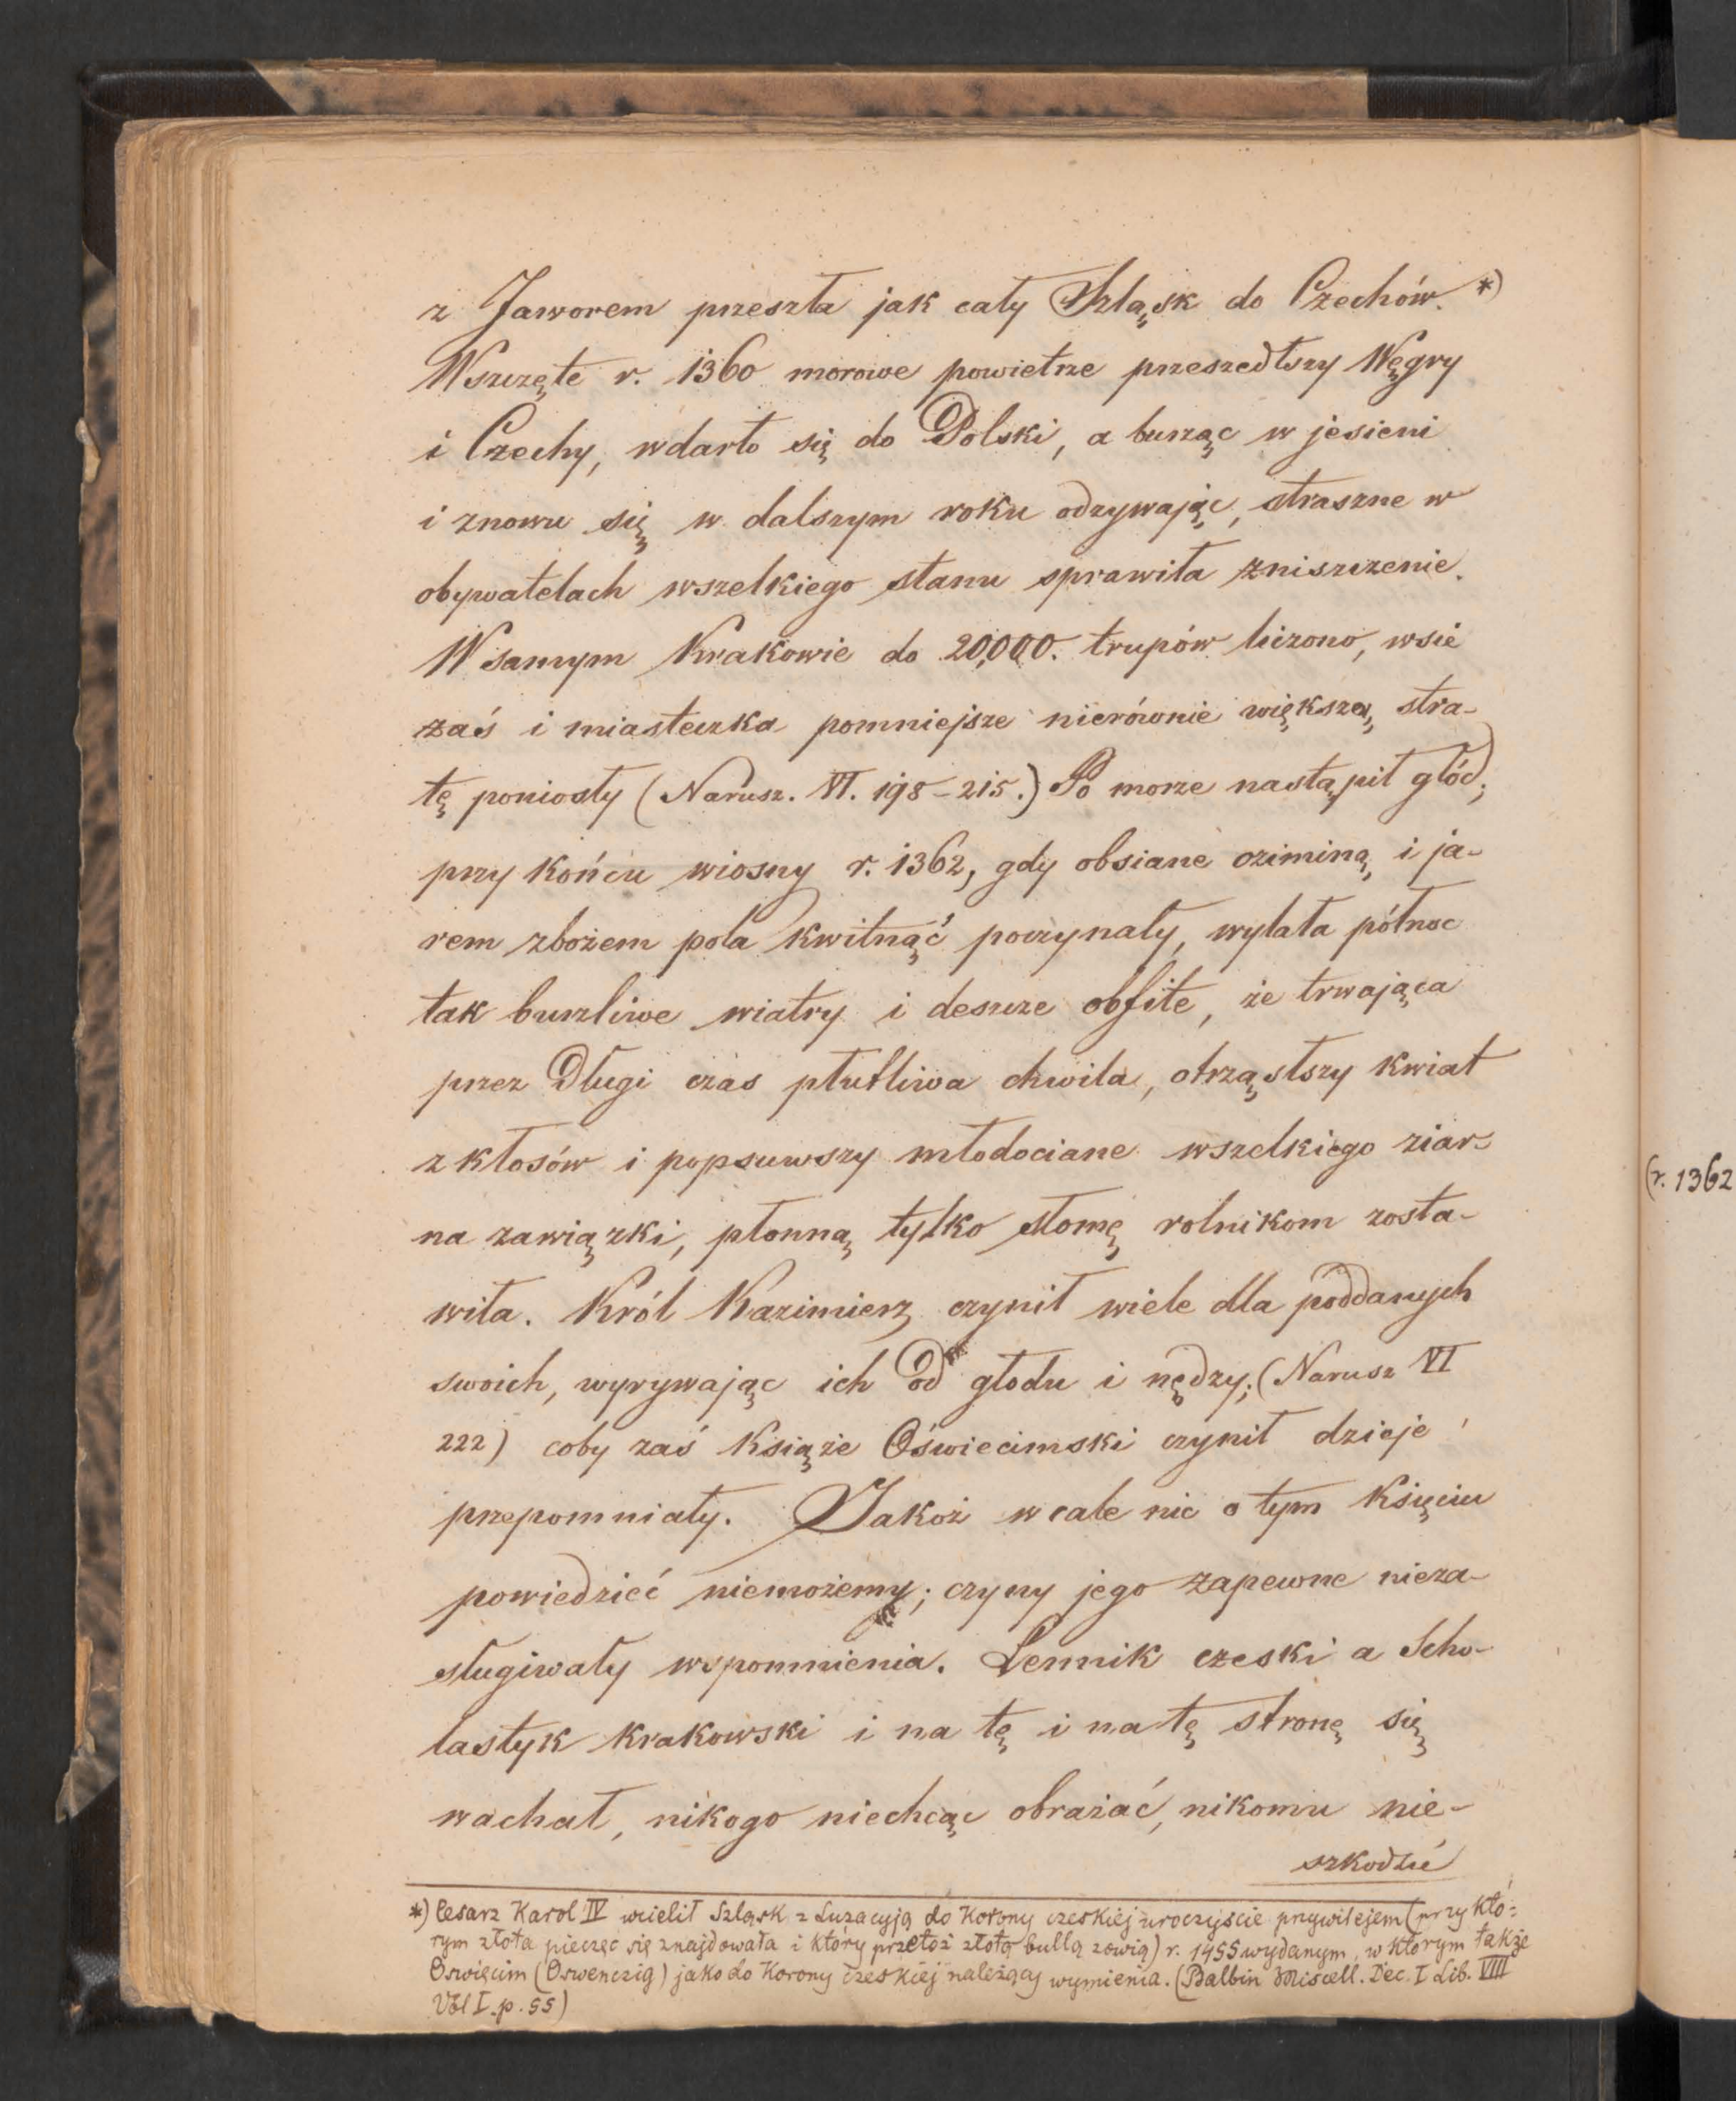 z Jaworem przeszła jak cały Szląsk do Czechów. *)
Wszczęte r. 1360 morowe powietrze przeszedłszy Węgry
i Czechy, wdarło się do Polski, a burząc w jesieni
i znowu się w dalszym roku odzywając, straszne w
obywatelach wszelkiego stanu sprawiła zniszczenie.
W samym Krakowie do 20,000. trupów liczono, wsie
zaś i miasteczka pomniejsze nierównie większą stra-
tę poniosły (Narusz. VI. 198-215.) Po morze nastąpił głód;
przy końcu wiosny r. 1362, gdy obsiane oziminą i ja-
rem zbożem pola kwitnąć poczynały, wylała północ
tak burzliwe wiatry i deszcze obfite, że trwająca
przez długi czas płutliwa chwila, otrząsłszy kwiat
z kłosów i popsuwszy młodociane wszelkiego ziar-
na zawiązki, płonną tylko słomę rolnikom zosta-
wiła. Król Kazimierz czynił wiele dla poddanych
swoich, wyrywając ich od głodu i nędzy; (Narusz VI
222) coby zaś Książe Oświecimski czynił dzieje
przepomniały. Jakoż wcale nic o tym Księciu
powiedzieć niemożemy; czyny jego zapewne nieza-
sługiwały wspomnienia. Lennik czeski a Scho-
lastyk krakowski i na tę i na tę stronę się
wachał, nikogo niechcąc obrażać, nikomu nie-
szkodzić
*) Cesarz Karol IV wcielił Szląsk z Luzacyją do Korony czeskiej uroczyście przywilejem (przy któ=
rym złota pieczęć się znajdowała i który przetoż złotą bullą zowią) r. 1455 wydanym, w którym także
Oswięcim (Oswenczig) jako do Korony czeskiej należący wymienia. (Balbin Miscell. Dec. I Lib. VIII
Vol I. p. 55)
(r. 1362